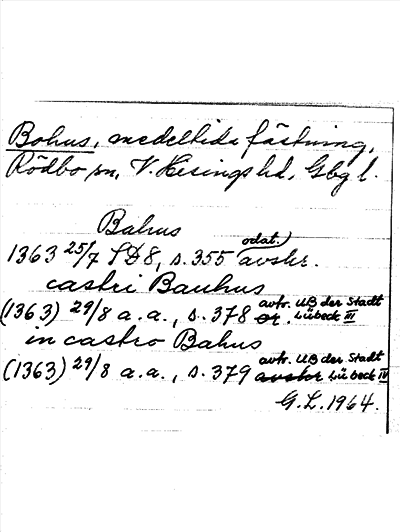 Bohus, medeltida fästning,
Rödbo sn, V. Hisings hd, Gbg l.
Bahus
1363 25/7 SD8, s. 355 odat.) avskr.
castri Bauhus
(1363) 29/8 a.a., s. 378 or. avtr. UB der Stadt Lübeck III
in castro Bahus
(1363) 29/8 a.a., s. 379 avskr avtr. UB der Stadt Lübeck IV
G.L. 1964.